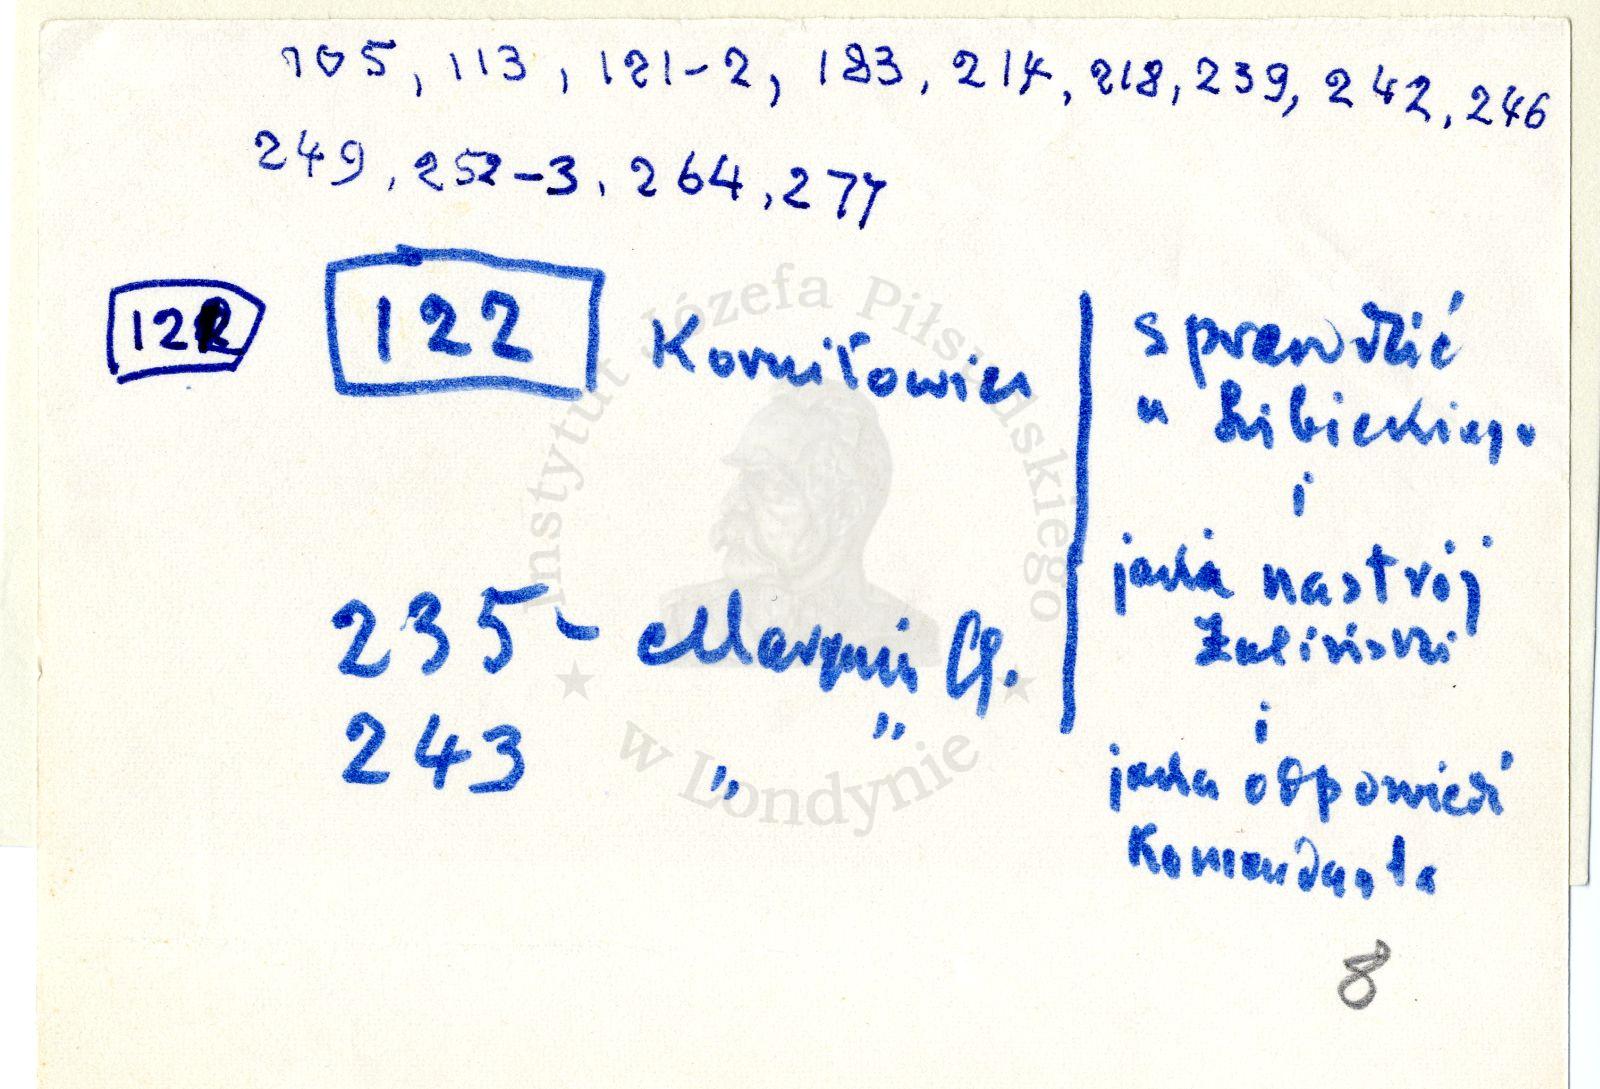 105, 113, 121-2, 183, 214, 218, 239, 242, 246
249, 252-3, 264, 277
122 122 Korniłowicz
235 -
243 " "
sprawdzić
u Libickiego
i
jaka nastrój
Zaliński
i
jaka odpowiedź
Komendanta
8
Instytut Józefa Piłsudskiego
w Londynie